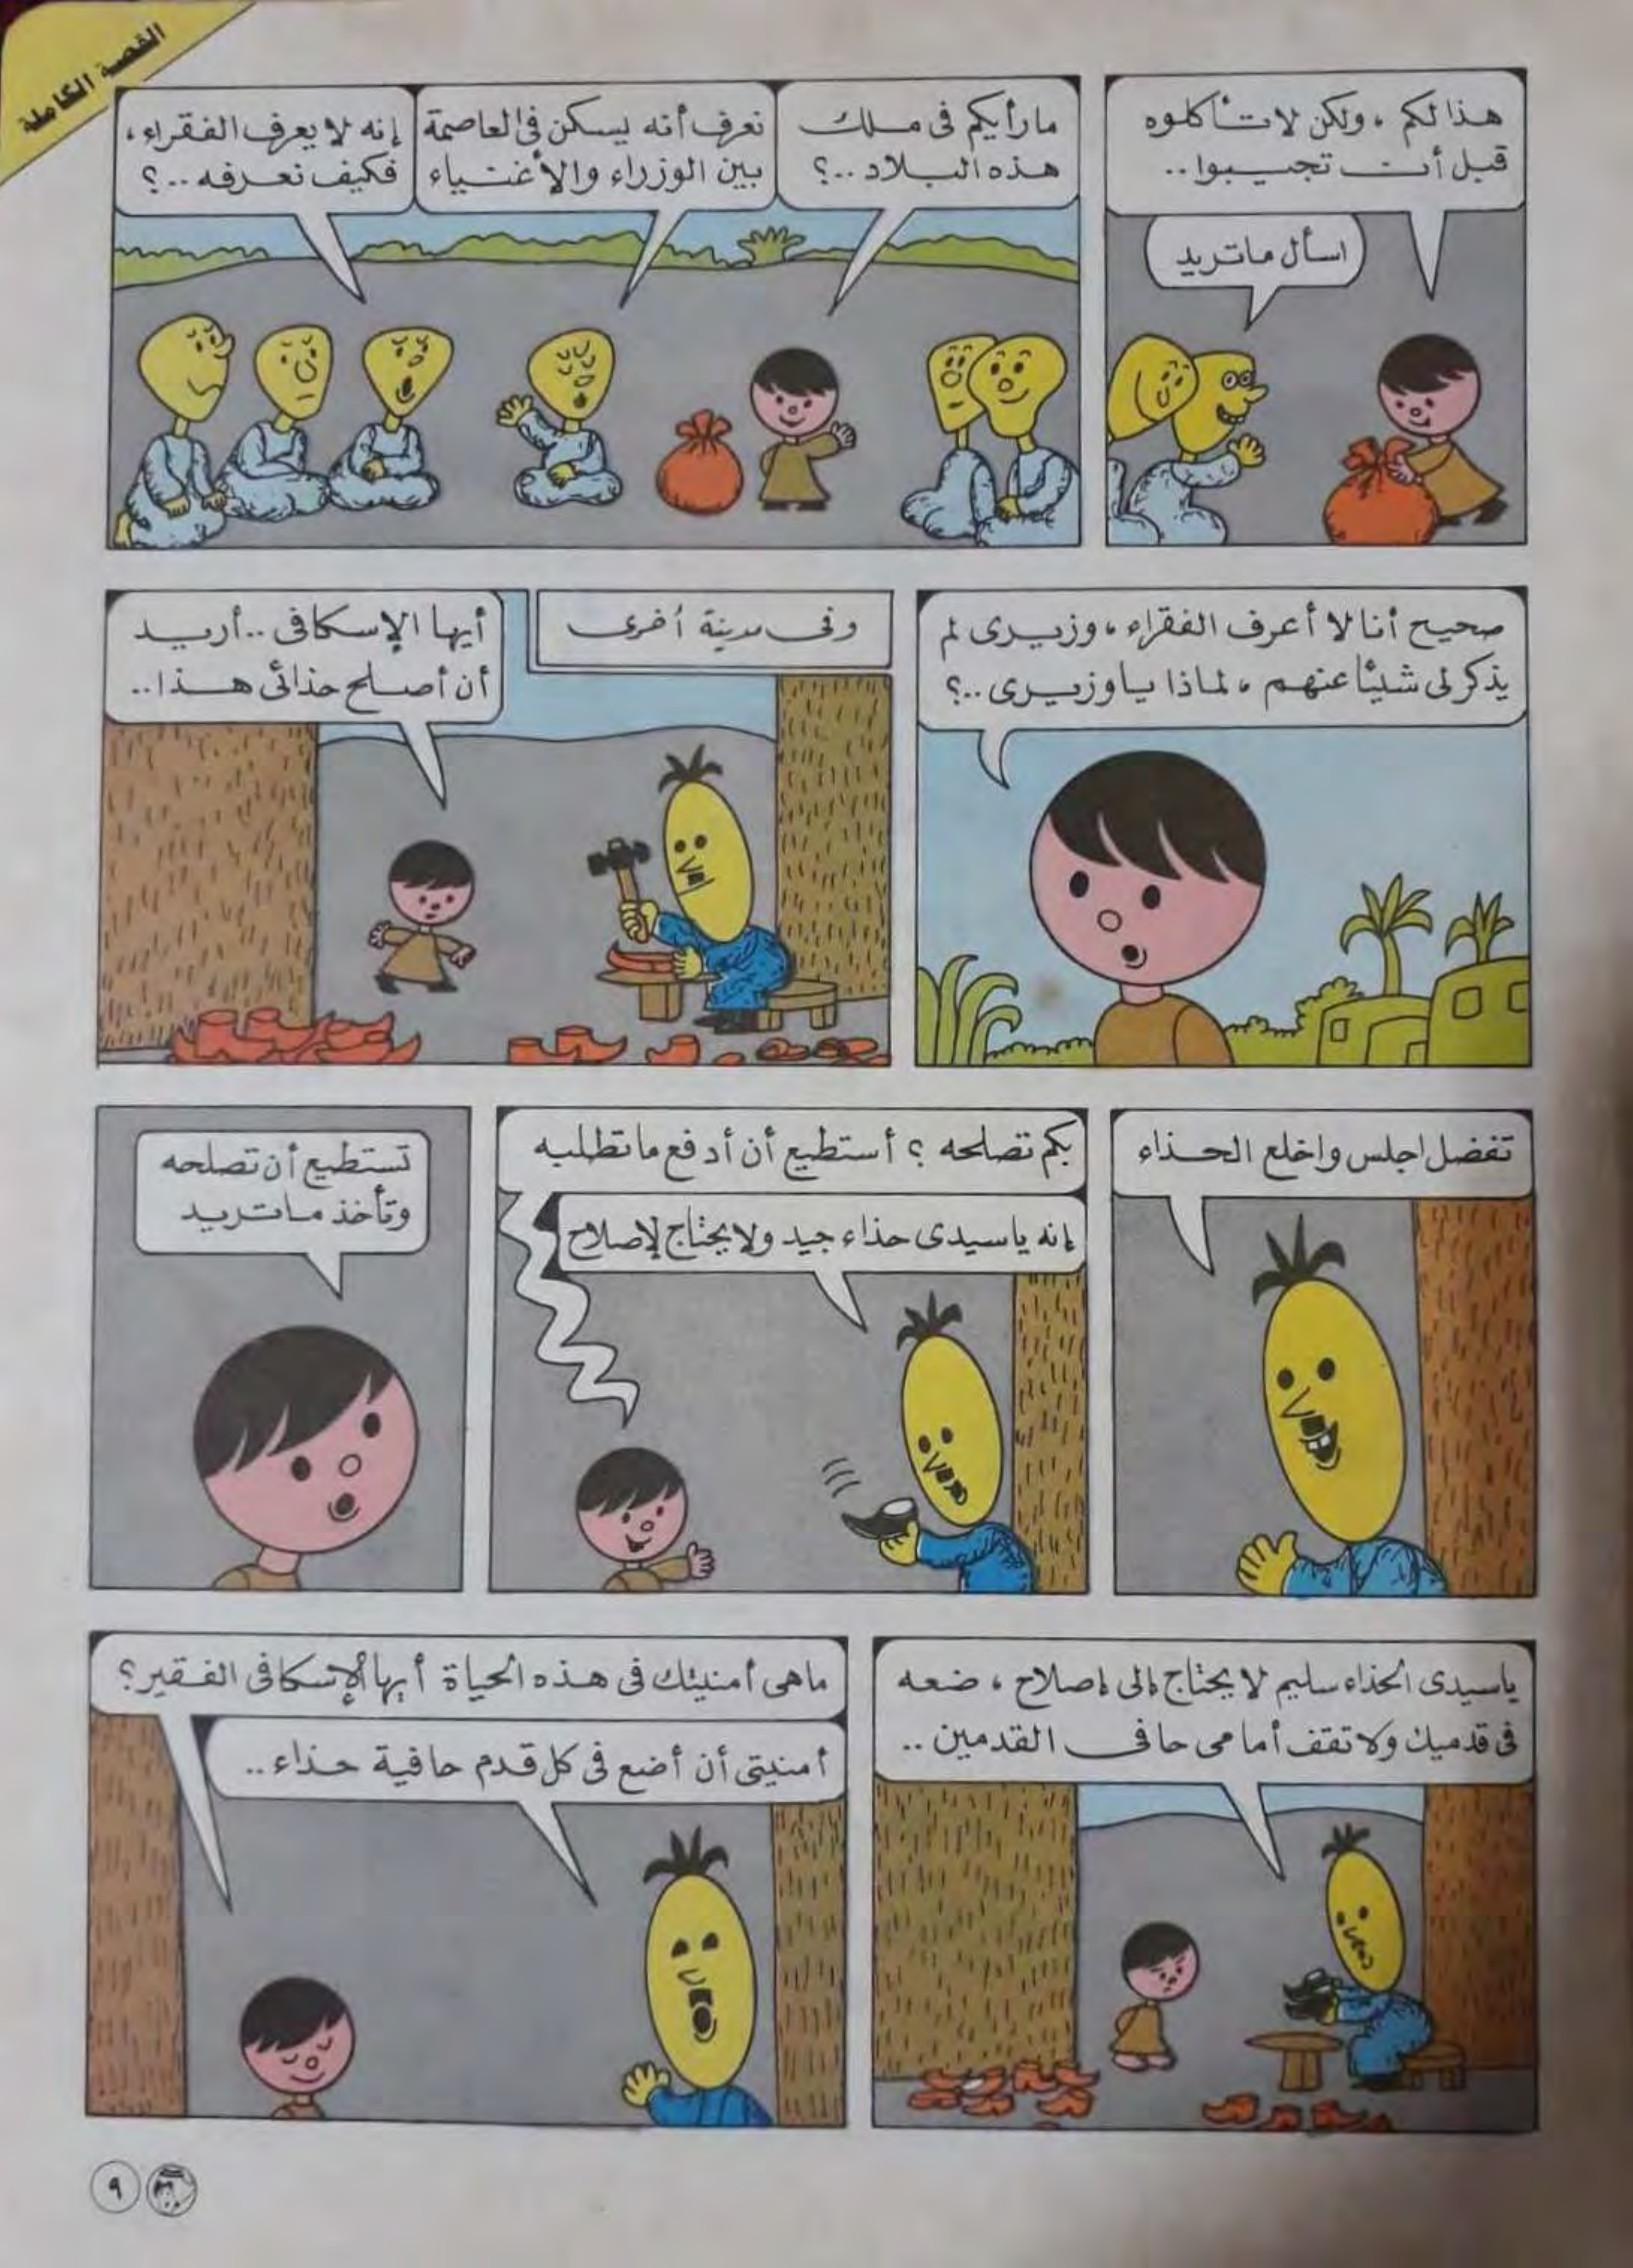 القصة الكاملة
هذا لكم ، ولكن لا تأكلوه
قبل أن تجيبوا ..
اسأل ما تريد
ما رأيكم في ملك
هذه البلاد ..؟
نعرف أنه يسكن في العاصمة
بين الوزراء والأغنياء
إنه لا يعرف الفقراء ،
فكيف نعرفه ..؟
صحيح أنا لا أعرف الفقراء ، وزيرى لم
يذكر لى شيئًا عنهم ، لماذا يا وزيرى ..؟
وفى مدينة أخرى
أيها الإسكافى .. أريد
أن أصلح حذائى هذا ..
تفضل اجلس واخلع الحذاء
بكم تصلحه ؟ أستطيع أن أدفع ما تطلبه
إنه يا سيدى حذاء جيد ولا يحتاج لإصلاح
تستطيع أن تصلحه
وتأخذ ما تريد
يا سيدى الحذاء سليم لا يحتاج إلى إصلاح ، ضعه
فى قدميك ولا تقف أمامى حافى القدمين ..
ما هى أمنيتك فى هذه الحياة أيها الإسكافى الفقير ؟
أمنيتى أن أضع فى كل قدم حافية حذاء ..
٩